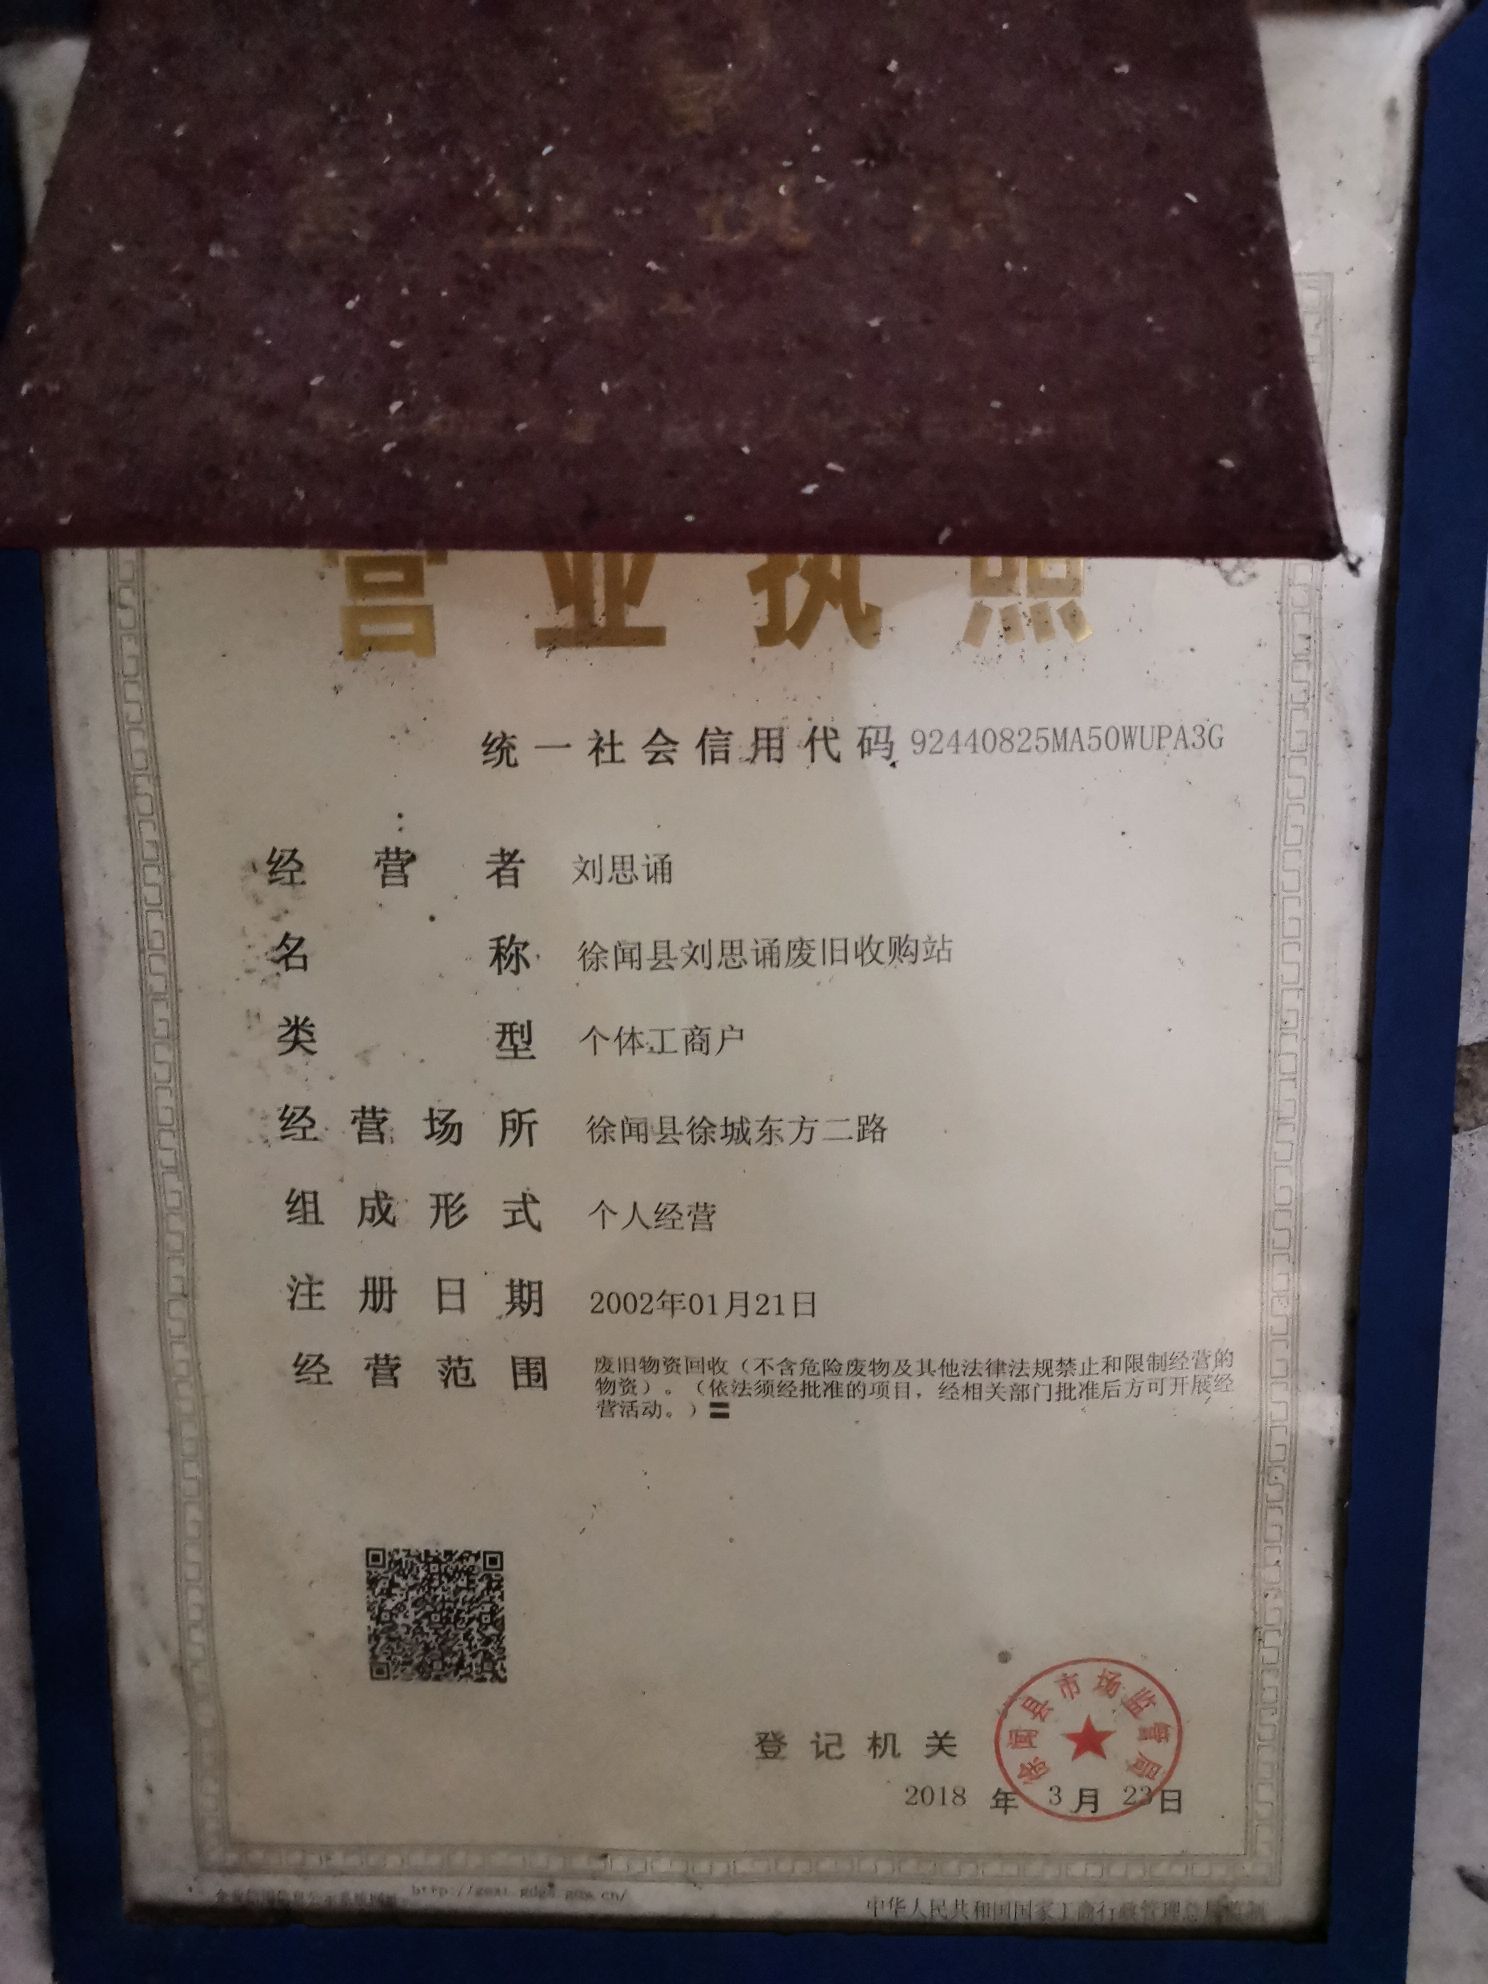 营业执照
营业执照
统一社会信用代码 92440825MA50WUPA3G
经营者 刘思诵
名称 徐闻县刘思诵废旧收购站
类型 个体工商户
经营场所 徐闻县徐城东方二路
组成形式 个人经营
注册日期 2002年01月21日
经营范围 废旧物资回收（不含危险废物及其他法律法规禁止和限制经营的
物资）。（依法须经批准的项目，经相关部门批准后方可开展经
营活动。）〓
徐闻县市场监管局
登记机关
2018 年 3 月 23 日
中华人民共和国国家工商行政管理总局监制